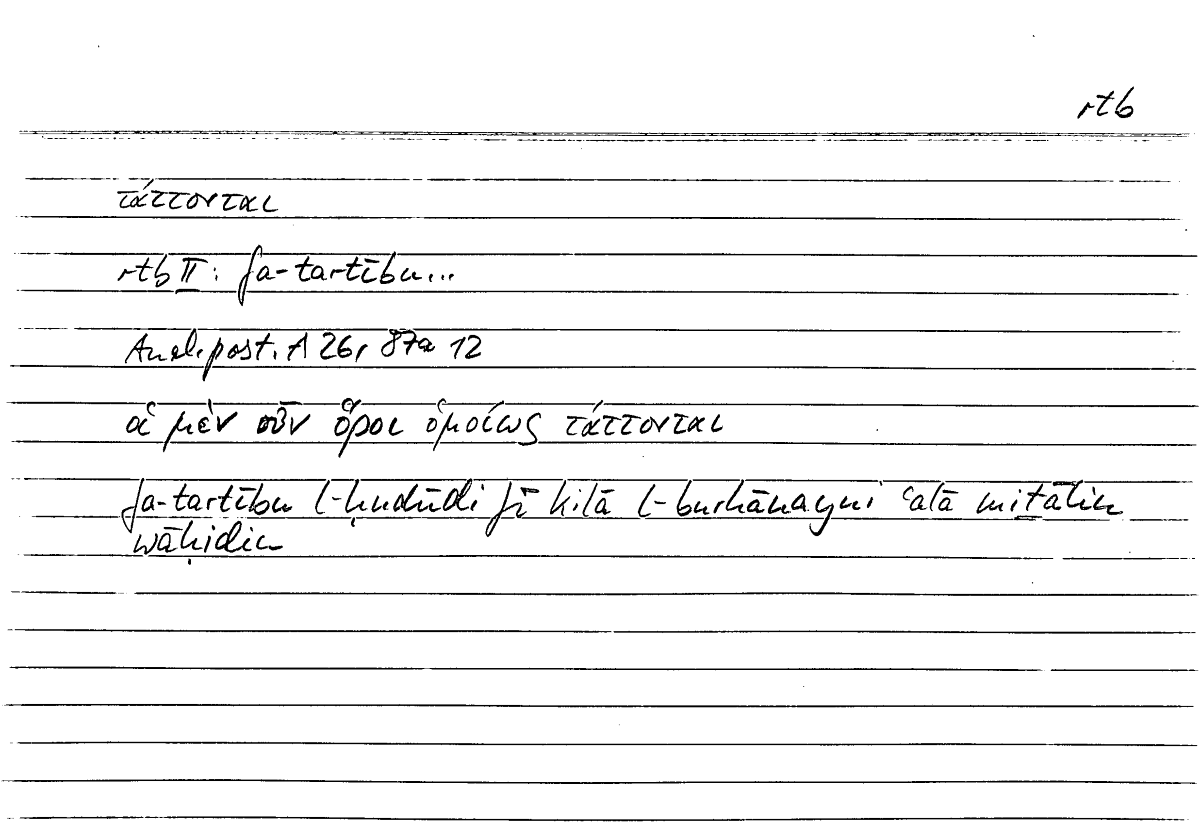 rtb
τάττονται
rtb II: fa-tartību...
Anal. post. A 26, 87a 12
οἱ μὲν οὖν ὅροι ὁμοίως τάττονται
fa-tartību l-ḥudūdi fī kilā l-burhānayni ʿalā miṯālin
wāḥidin